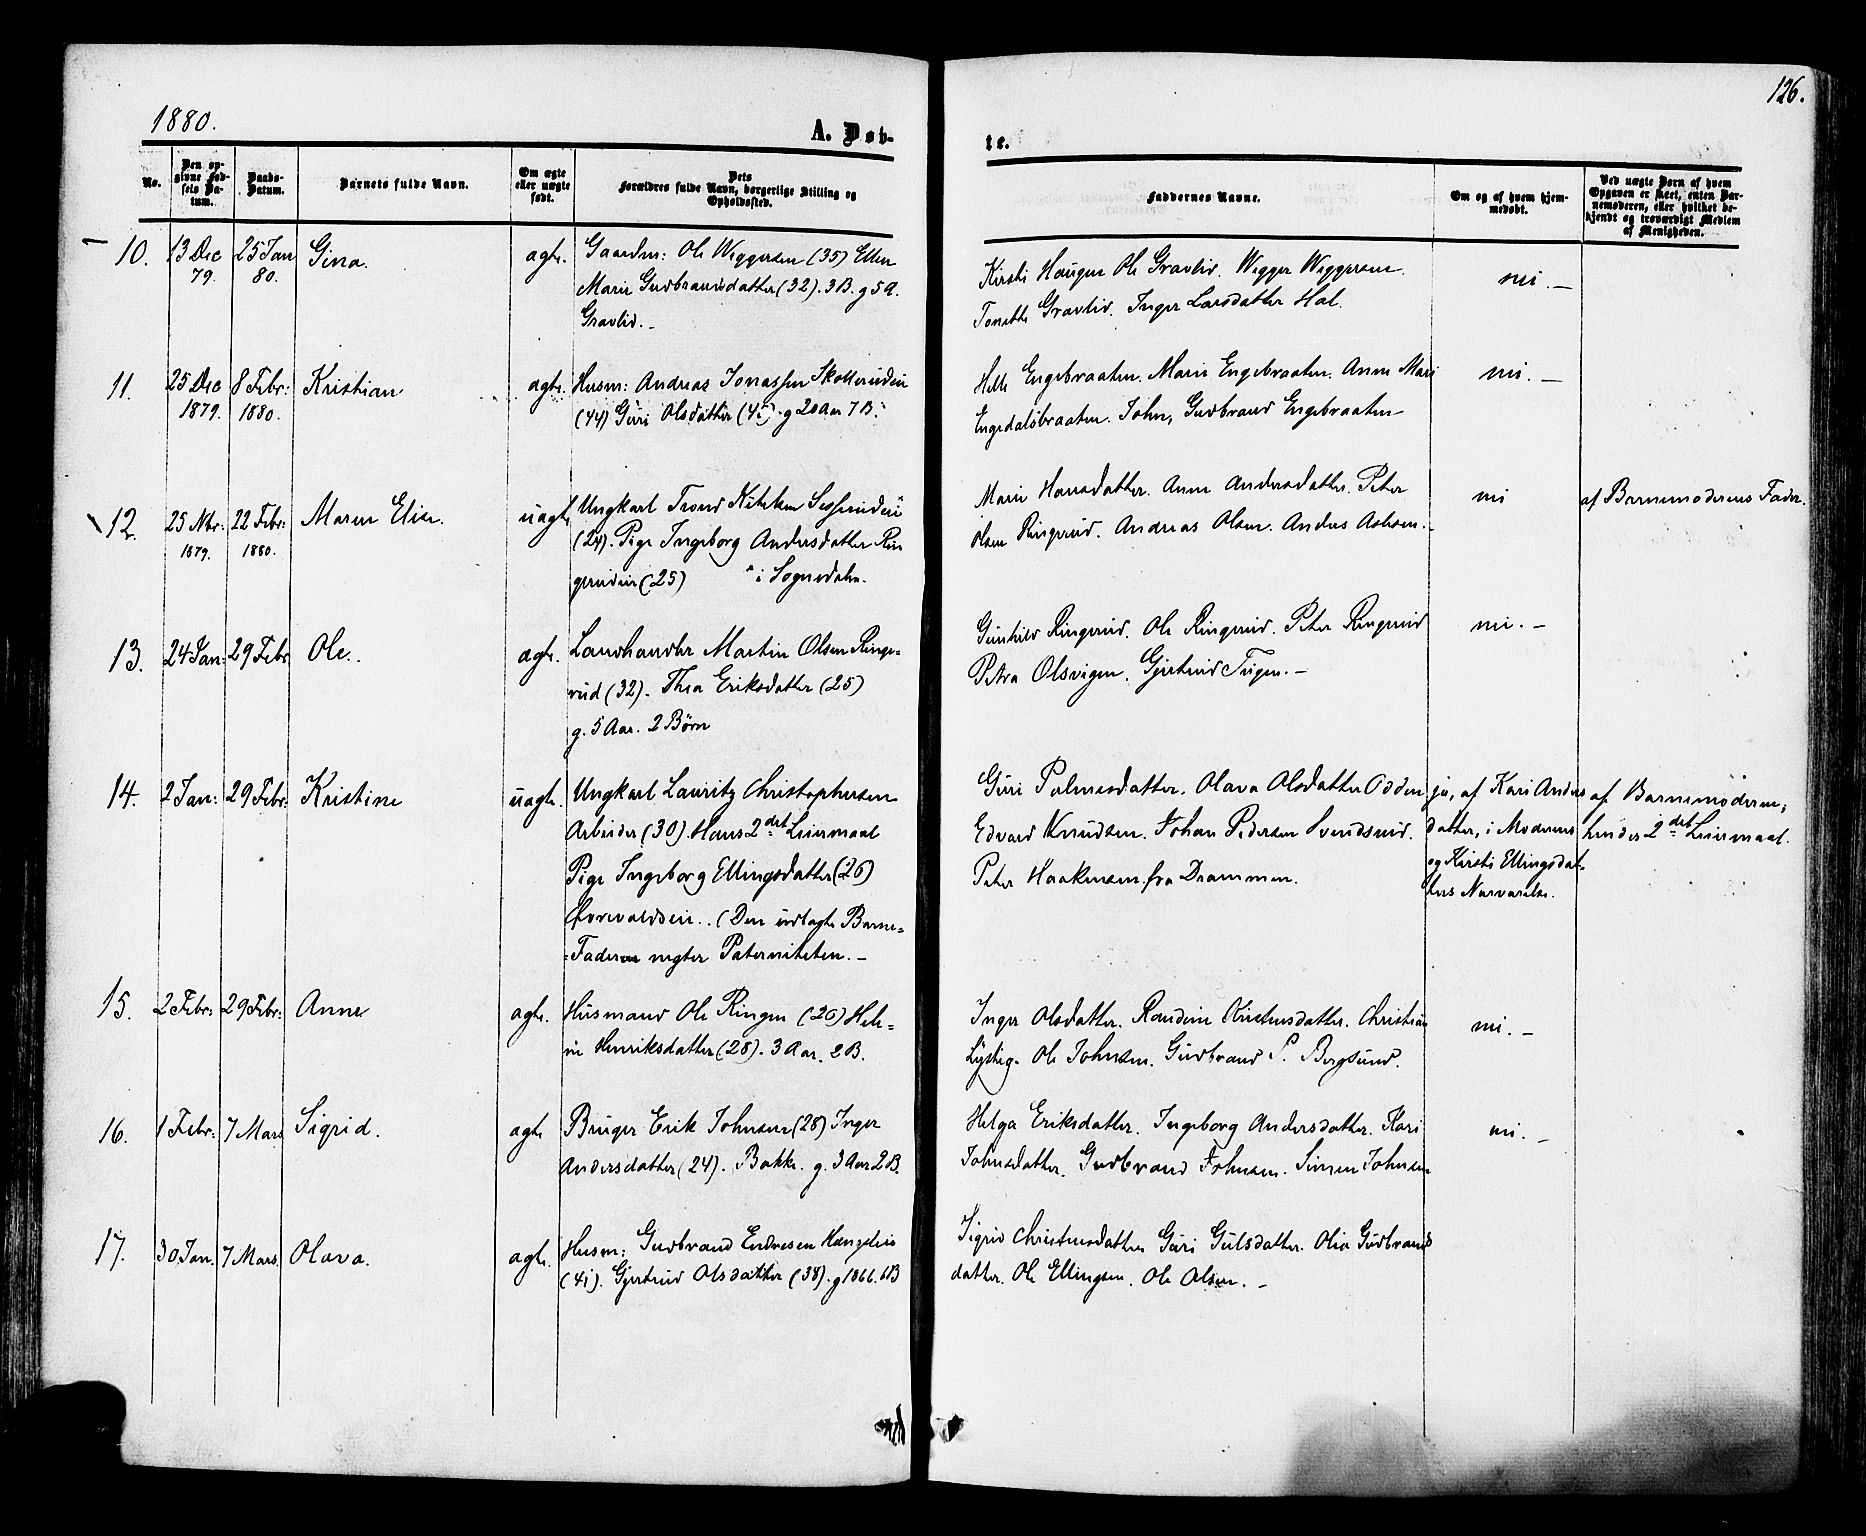 1880.
A. Døb-
No.
Den op-
givne Fød-
sels Da-
tum.
Daabs-
Datum.
Barnets fulde Navn.
Om ægte
eller uægte
født.
Dets
Forældres fulde Navn, borgerlige Stilling og
Opholdssted.
10.
13 Dec
79.
25 Jan
80.
Gina.
ægte.
Gaardm: Ole Wiggersen (35) Ellen
Marie Gudbrandsdatter (32). 3B. g 5 A.
Gravlid.
11.
25 Dec
1879.
8 Febr:
1880.
Kristian
ægte.
Husm: Andreas Jonassen
(44) Guri Olsdatter g 20 Aar 7 B.
12.
25 Nbr:
1879.
22 Febr:
1880.
Maren Elise.
uægte
Ungkarl Trond
(24). Pige Ingeborg Andersdatter Rin
gerudeie (25) i Sognedalen.
13.
24 Jan:
29 Febr
Ole.
ægte.
Landhandler Martin Olsen Ringe-
rud (32). Thea Eriksdatter (25)
g. 5 Aar. 2 Børn
14.
2 Jan:
29 Febr:
Kristine
uægte.
Ungkarl Lauritz Christophersen
Arbeider (30). Hans 2det Leiermaal
Pige Ingeborg Ellingsdatter (26)
(Den udlagte Barne=
=Fader negter Paterniteten. –
15.
2 Febr:
29 Febr:
Anne
ægte.
Husmand Ole Ringen (26) Hele=
ne Henriksdatter (28). 3 Aar. 2 B.
16.
1 Febr:
7 Mars
Sigrid.
ægte
Bruger Erik Johnsen (28) Inger
Andersdatter (24). Bakke. g. 3 Aar 2 B.
17.
30 Jan.
7 Mars.
Olava.
ægte.
Husm: Gudbrand Endresen
(41). Gjertrud Olsdatter (38). g 1866. 6B
126.
te.
Faddernes Navne.
Om og af hvem hjem-
medøbt.
Ved uægte Børn af hvem
Opgaven er skeet, enten Bar-
nemoderen, eller hvilket be-
kjendt og troværdigt Medlem
af Menigheden.
Kirsti Haugen Ole Gravlid. Wigger Wiggersen.
Tonette Gravlid. Inger Larsdatter
nei. –
Helle Engebraaten. Marie Engebraaten. Anne Mari
Engedalsbraaten. John, Gudbrand Engebraaten
nei. –
Marie Hansdatter. Anne Andersdatter. Peter
Olsen Ringerud. Andreas Olsen. Anders
nei
af Barnemoderens Fader.
Gunhild Ringerud. Ole Ringerud. Peter Ringerud
Petra Olsvigen. Gjertrud
nei. –
Guri Palmesdatter. Olava Olsdatter Odden
Edvard Knudsen. Johan Pedersen Svendsrud.
Peter Haakensen fra Drammen.
ja, af Kari Anders
datter, i Moderens
og Kirsti Ellingsdat-
ters Nærværelse.
af Barnemoderen;
hendes 2det Leiermaal.
Inger Olsdatter. Randine Kristensdatter. Christian
Lystig. Ole Johnsen. Gudbrand P. Bergsund.
nei. –
Helga Eriksdatter. Ingeborg Andersdatter. Kari
Johnsdatter. Gudbrand Johnsen. Simen Johnsen
nei. –
Sigrid Christensdatter Guri Gulsdatter. Olia Gudbrands
datter. Ole Ellingsen. Ole Olsen. –